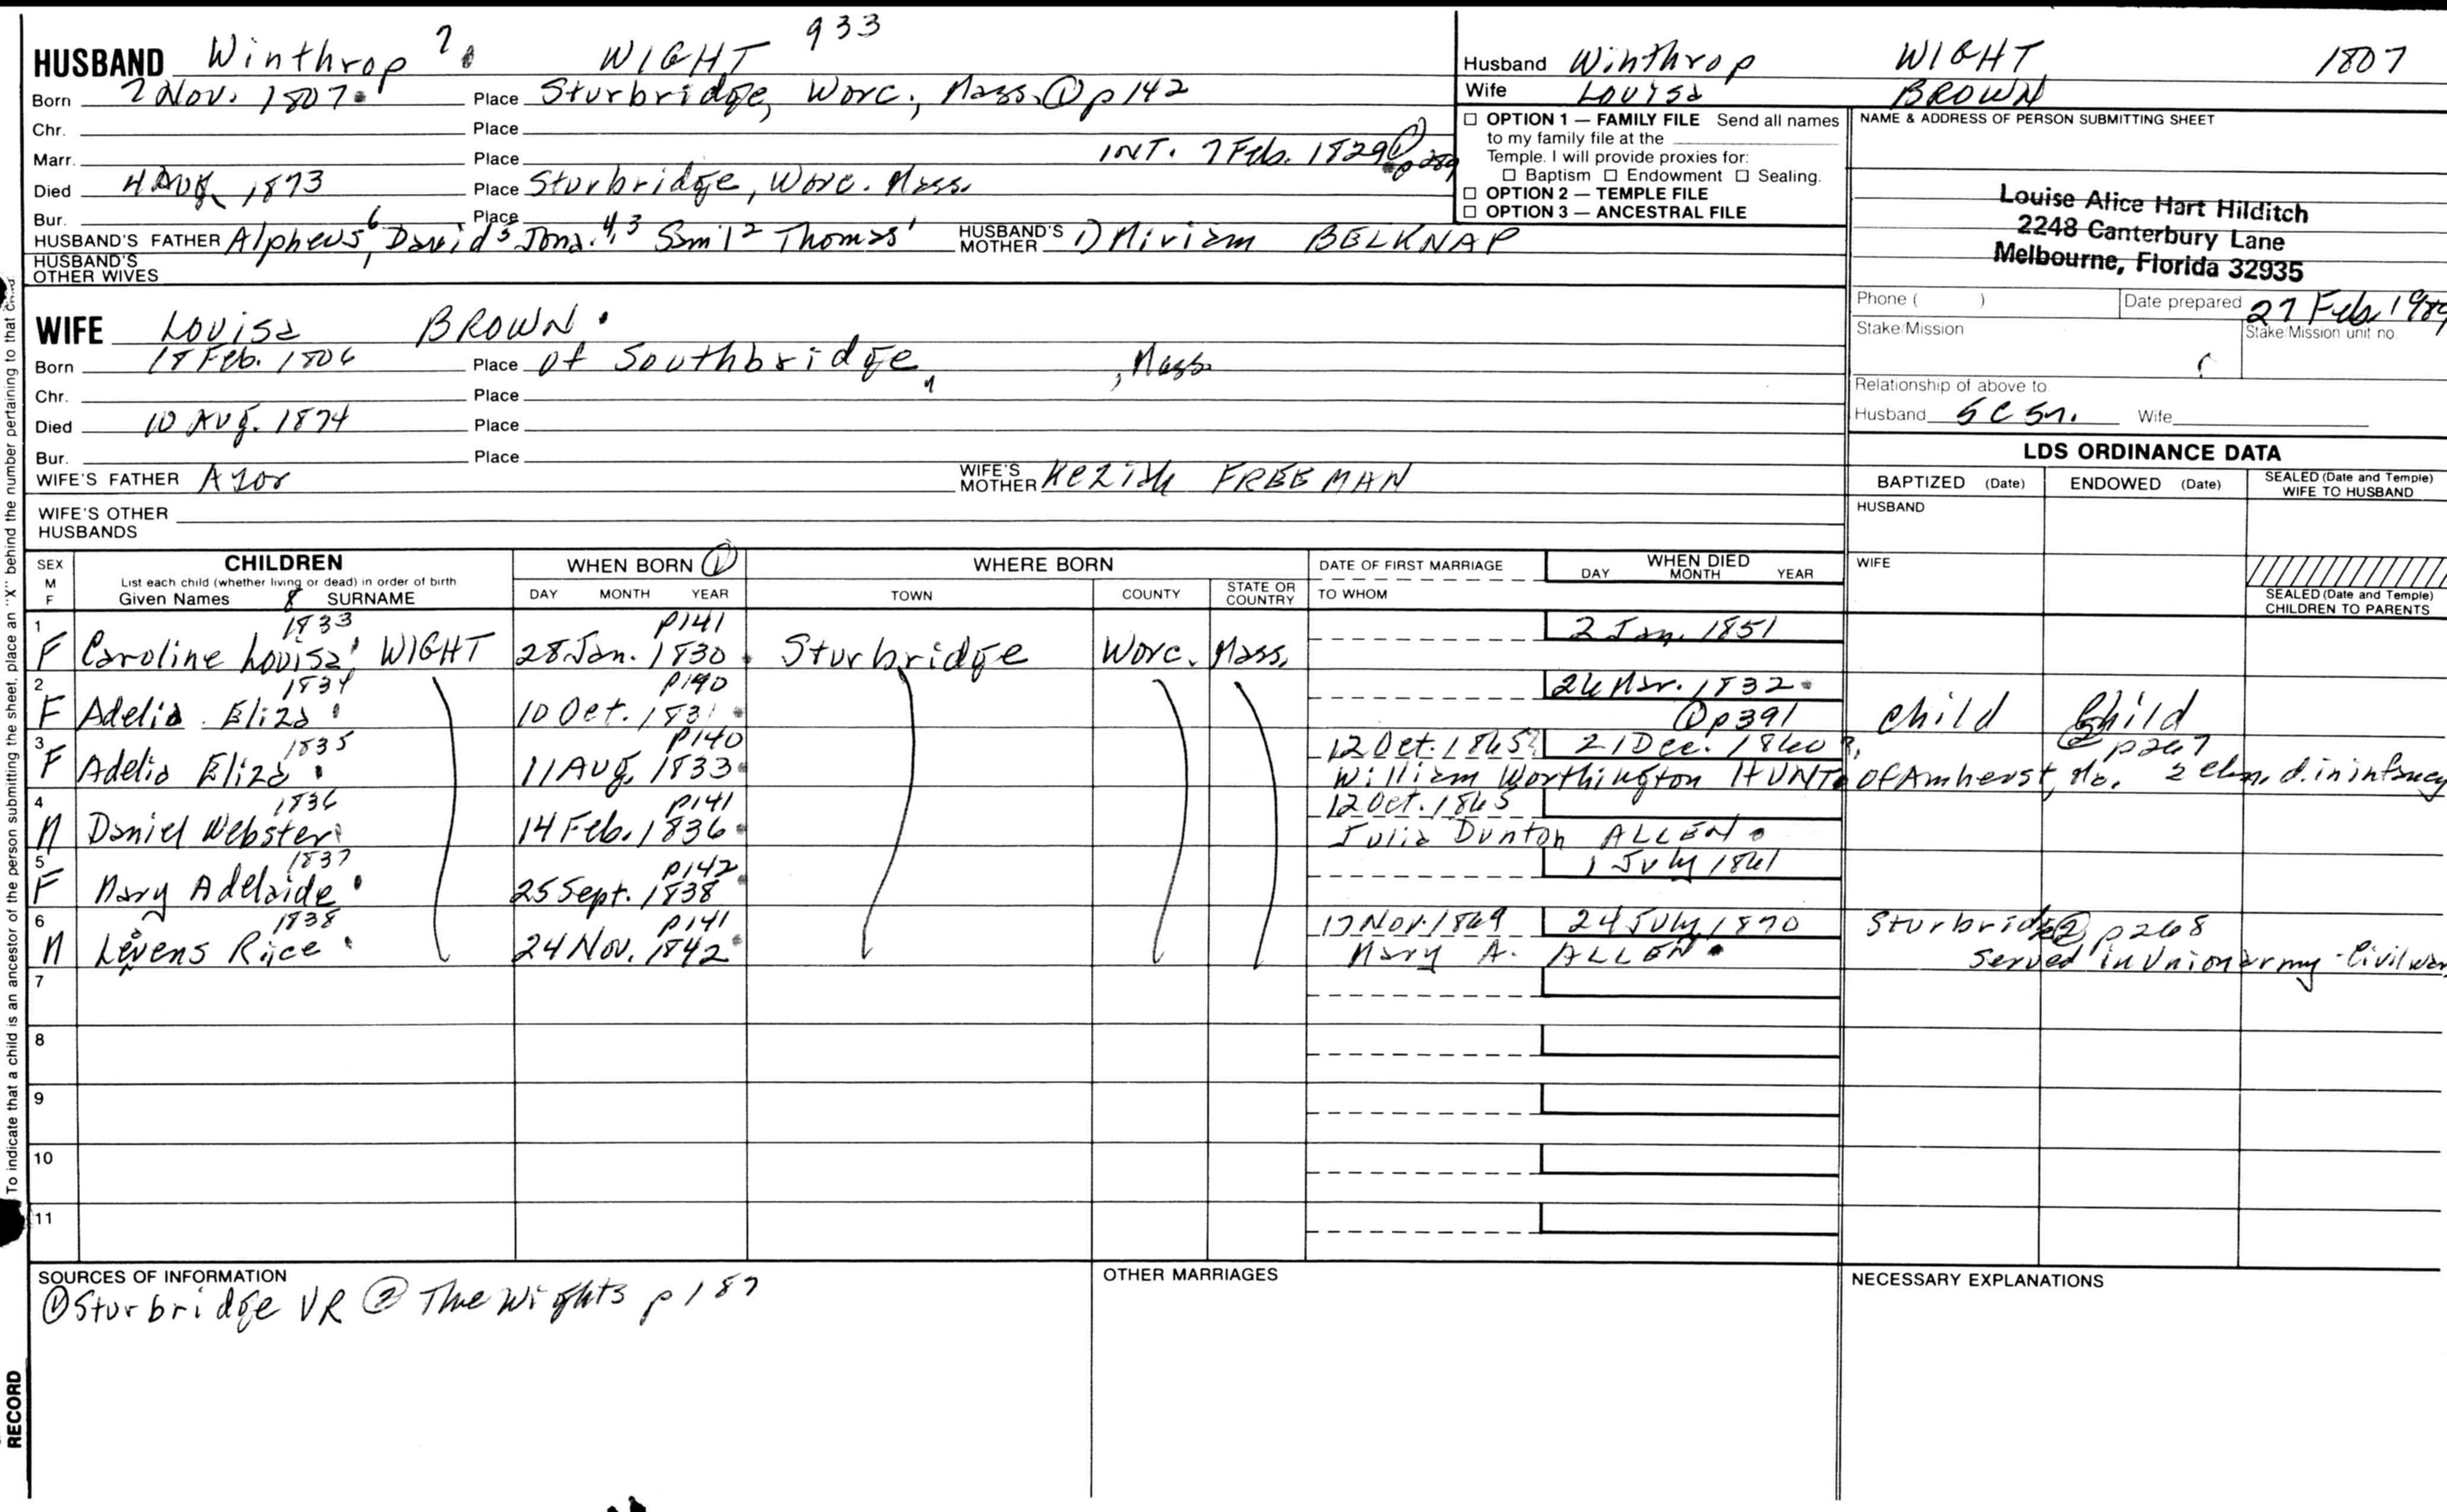 HUSBAND Winthrop 7 WIGHT 933
Born 7 Nov. 1807 Place Sturbridge, Worc., Mass. ① p 142
Chr. Place
Marr. Place INT. 7 Feb. 1829 ①
Died 4 Aug. 1873 Place Sturbridge, Worc. Mass.
Bur. Place
HUSBAND'S FATHER Alpheus6, David5 Jona.4,3 Sam'l2 Thomas1 HUSBAND'S MOTHER 1) Miriam BELKNAP
HUSBAND'S OTHER WIVES
Husband Winthrop WIGHT 1807
Wife Louisa BROWN
☐ OPTION 1 — FAMILY FILE Send all names
to my family file at the
Temple. I will provide proxies for:
☐ Baptism ☐ Endowment ☐ Sealing.
☐ OPTION 2 — TEMPLE FILE
☐ OPTION 3 — ANCESTRAL FILE
NAME & ADDRESS OF PERSON SUBMITTING SHEET
Louise Alice Hart Hilditch
2248 Canterbury Lane
Melbourne, Florida 32935
Phone ( ) Date prepared 27 Feb. 1989
Stake/Mission Stake/Mission unit no.
Relationship of above to
Husband 5 C 5 r. Wife
WIFE Louisa BROWN
Born 18 Feb. 1806 Place of Southbridge, , Mass.
Chr. Place
Died 10 Aug. 1874 Place
Bur. Place
WIFE'S FATHER Azor WIFE'S MOTHER Keziah FREEMAN
WIFE'S OTHER
HUSBANDS
LDS ORDINANCE DATA
BAPTIZED (Date) ENDOWED (Date) SEALED (Date and Temple) WIFE TO HUSBAND
HUSBAND
WIFE
SEALED (Date and Temple) CHILDREN TO PARENTS
SEX M F CHILDREN WHEN BORN ① WHERE BORN DATE OF FIRST MARRIAGE WHEN DIED
List each child (whether living or dead) in order of birth DAY MONTH YEAR
Given Names 8 SURNAME DAY MONTH YEAR TOWN COUNTY STATE OR COUNTRY TO WHOM
1 1833 p141 2 Jan. 1851
F Caroline Louisa WIGHT 28 Jan. 1830 Sturbridge Worc. Mass.
2 1834 p140 26 Mar. 1832
F Adelia Eliza 10 Oct. 1831 ① p391 child Child
3 1835 p140 12 Oct. 1865? 21 Dec. 1860? ② p267
F Adelia Eliza 11 Aug. 1833 William Worthington HUNT of Amherst, do. 2 chn. d. in infancy
4 1836 p141 12 Oct. 1865
M Daniel Webster 14 Feb. 1836 Julia Dunton ALLEN
5 1837 p142 1 July 1861
F Mary Adelaide 25 Sept. 1838
6 1838 p141 17 Nov. 1869 24 July 1870 Sturbridge ② p268
M Levens Rice 24 Nov. 1842 Mary A. ALLEN Served in Union army - Civil war
7
8
9
10
11
SOURCES OF INFORMATION
① Sturbridge VR ② The Wights p 187
OTHER MARRIAGES
NECESSARY EXPLANATIONS
To indicate that a child is an ancestor of the person submitting the sheet, place an "X" behind the number pertaining to that child
RECORD